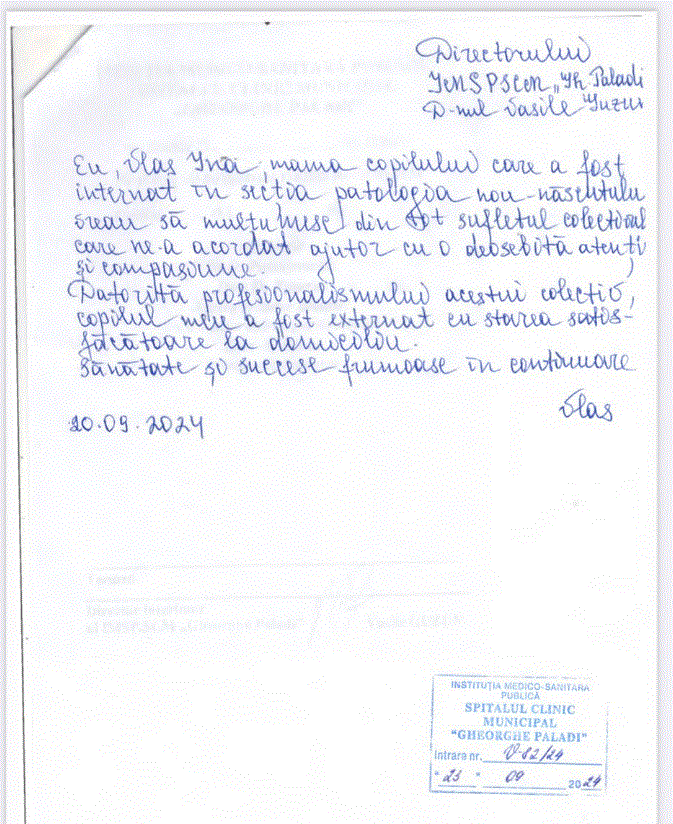 Directorului
IMSP SCM „Gh. Paladi
D-nul Vasile Guzun
Eu, Vlas Ina, mama copilului care a fost
internat în secția patologia nou-născutulu
vreau să mulțumesc din tot sufletul colectivul
care ne-a acordat ajutor cu o deosebită atenți
și compasiune.
Datorită profesionalismului acestui colectiv,
copilul meu a fost externat cu starea satis-
făcătoare la domiciliu.
Sănătate și succese frumoase în continuare
Vlas
20.09.2024
INSTITUȚIA MEDICO-SANITARA
PUBLICĂ
SPITALUL CLINIC
MUNICIPAL
"GHEORGHE PALADI"
Intrara nr. V-82/24
"23" 09 2024